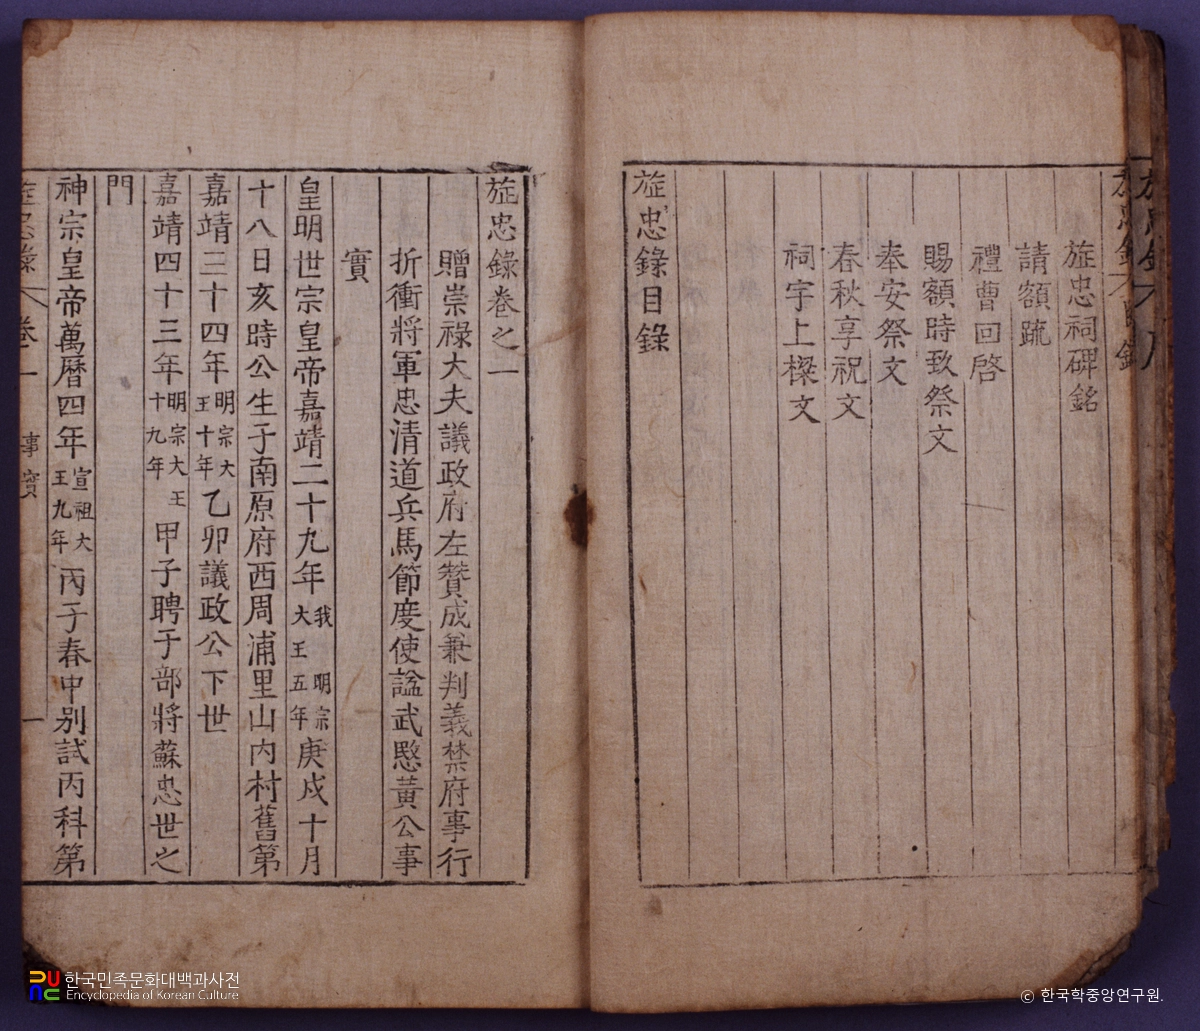 旌忠祠碑銘
請額疏
禮曹回啓
賜額時致祭文
奉安祭文
春秋享祝文
祠宇上樑文
旌忠錄目錄
旌忠錄卷之一
贈崇祿大夫議政府左贊成兼判義禁府事行
折衝將軍忠清道兵馬節度使諡武愍黃公事
實
皇明世宗皇帝嘉靖二十九年我 明宗大王五年庚戌十月
十八日亥時公生于南原府西周浦里山內村舊第
嘉靖三十四年明宗大王十年乙卯議政公下世
嘉靖四十三年明宗大王十九年甲子聘于部將蘇忠世之
門
神宗皇帝萬曆四年宣祖大王九年丙子春中別試丙科第
旌忠錄 卷一 事實 一
한국민족문화대백과사전
Encyclopedia of Korean Culture
ⓒ 한국학중앙연구원.